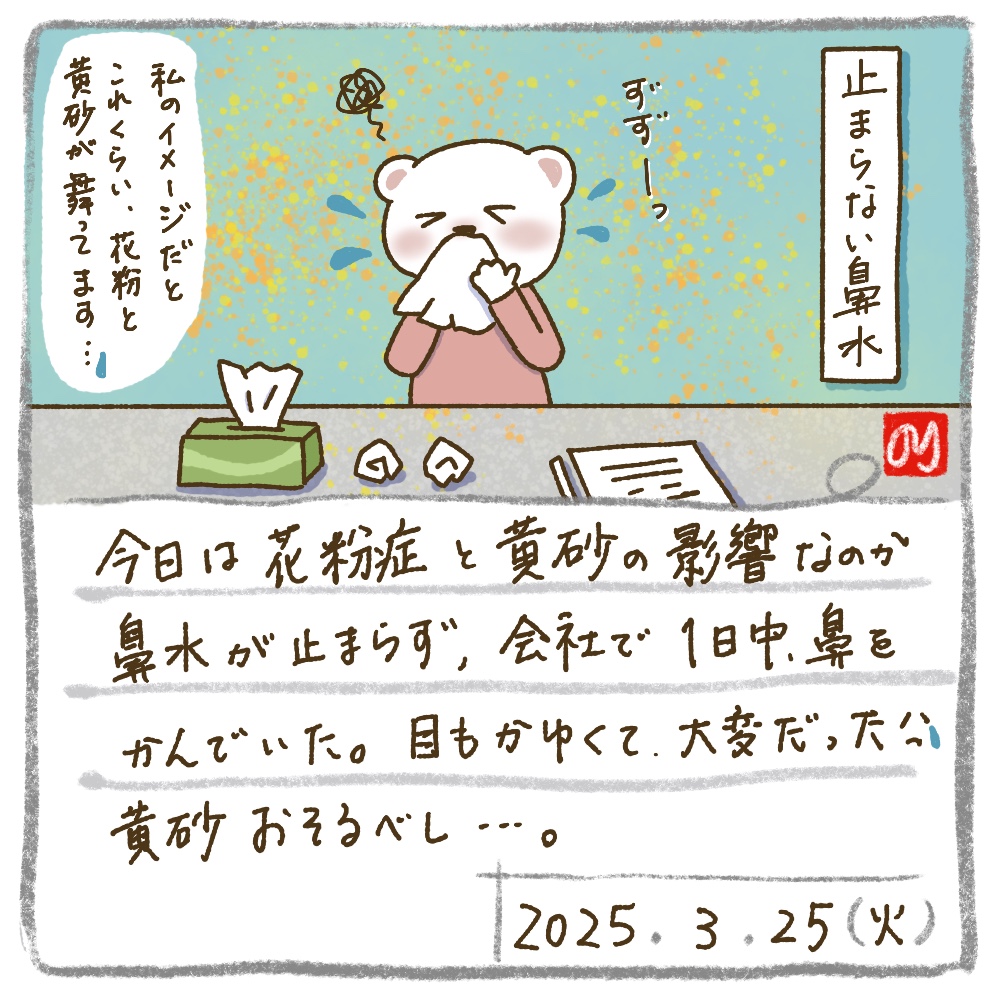 止まらない鼻水
ずずーっ
私のイメージだと
これくらい、花粉と
黄砂が舞ってます…
今日は花粉症と黄砂の影響なのか
鼻水が止まらず、会社で1日中、鼻を
かんでいた。目もかゆくて、大変だった
黄砂おそるべし…。
2025.3.25(火)